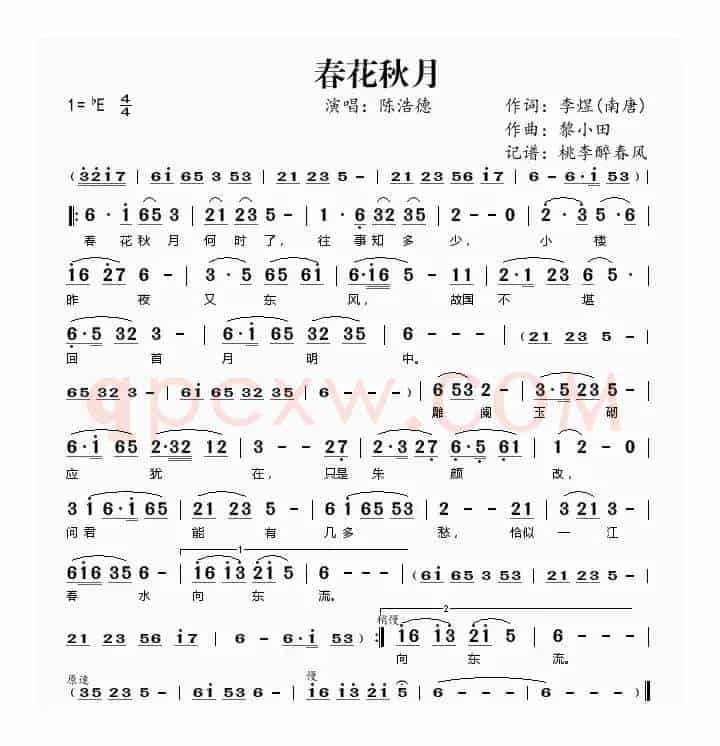 春花秋月
1= ♭E 4/4 演唱：陈浩德 作词：李煜(南唐)
作曲：黎小田
记谱：桃李醉春风
(3 2 i 7 | 6 i 6 5 3 5 3 | 2 1 2 3 5 - | 2 1 2 3 5 6 i 7 | 6 - 6 · i 5 3 )
‖: 6 · i 6 5 3 | 2 1 2 3 5 - | 1 · 6 3 2 3 5 | 2 - - 0 | 2 · 3 5 · 6 |
春 花 秋 月 何 时 了， 往 事 知 多 少， 小 楼
i 6 2 7 6 - | 3 · 5 6 5 6 i | 6 · i 6 5 - 1 1 | 2 · 1 2 3 6 5 |
昨 夜 又 东 风， 故国 不 堪
6 · 5 3 2 3 - | 6 · i 6 5 3 5 3 2 | 6 - - - | ( 2 1 2 3 5 - |
回 首 月 明 中。
6 5 3 2 3 - | 6 i 6 5 3 5 3 2 | 6 - - - ) | 6 5 3 2 - | 3 · 5 2 3 5 |
雕 阑 玉 砌
6 · i 6 5 2 · 3 2 1 2 | 3 - - 2 7 | 2 · 3 2 7 6 · 5 6 1 | 1 2 - 0 |
应 犹 在， 只是 朱 颜 改，
3 i 6 · i 6 5 | 2 1 2 3 5 - | 3 5 6 i 6 5 3 5 | 2 - - 2 1 | 2 3 - 5 |
问 君 能 有 几 多 愁， 恰似 一 江
6 i 6 3 5 6 - | i 6 i 3 2 i 5 | 6 - - - | ( 6 i 6 5 3 5 3 | 2 1 2 3 5 - |
1
春 水 向 东 流。
2 1 2 3 5 6 i 7 | 6 - 6 · i 5 3 ) :‖ i 6 i 3 2 i 5 | 6 - - - |
稍慢 2
向 东 流。
原速 慢
( 3 5 2 3 5 - | 6 i 5 3 6 - | i 6 i 3 2 i 5 | 6 - - - | 6 - - - ) ‖
qpcxw.COM